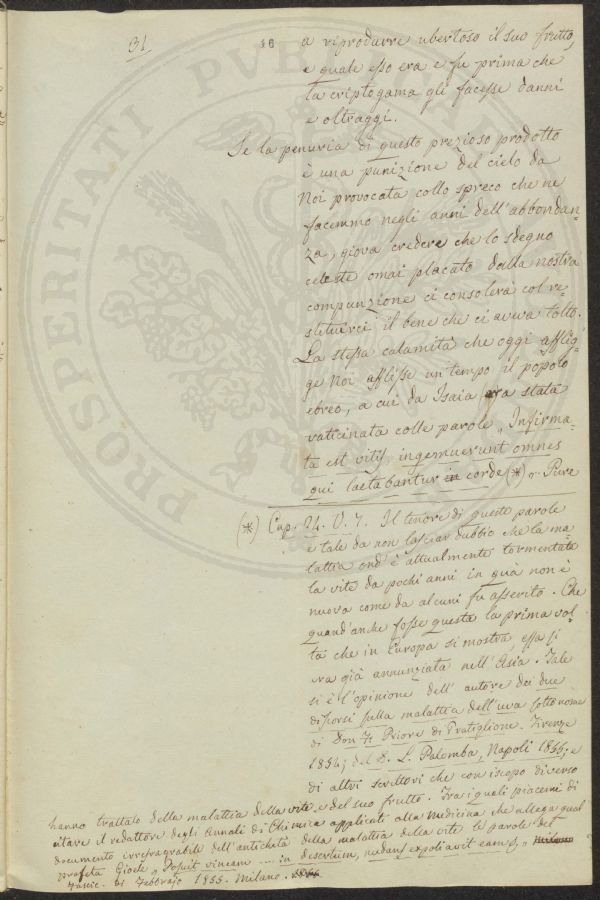 31.
16
a riprodurre ubertoso il suo frutto,
e quale esso era e fu prima che
la criptogama gli facesse danni
e oltraggi.
Se la penuria di questo prezioso prodotto
è una punizione del cielo da
Noi provocata collo spreco che ne
facemmo negli anni dell'abbondan-
za, giova credere che lo sdegno
celeste omai placato dalla nostra
compunzione ci consolerà col re-
stituirci il bene che ci aveva tolto.
La stessa calamità che oggi afflig-
ge Noi afflisse un tempo il popolo
ebreo, a cui da Isaia era stata
vaticinata colle parole „ Infirma-
ta est vitis, ingemuerunt omnes
qui laetabantur in corde (*) „. Pure
(*) Cap. 24. V. 7. Il tenore di queste parole
è tale da non lasciar dubbio che la ma-
lattia ond'è attualmente tormentata
la vite da pochi anni in quà non è
nuova come da alcuni fu asserito. Che
quand'anche fosse questa la prima vol-
ta che in Europa si mostra, essa si
era già annunziata nell'Asia. Tale
si è l'opinione dell'autore dei due
discorsi sulla malattia dell'uva sotto nome
di Don Priore di Fratiglione. Firenze
1854; del D. L. Palomba, Napoli 1855; e
di altri scrittori che con iscopo diverso
hanno trattato della malattia della vite e del suo frutto. Fra i quali piacemi di
citare il redattore degli Annali di Chimica applicata alla Medicina che allega qual
documento irrefragabile dell'antichità della malattia della vite le parole del
profeta Gioele „ Posuit vineam .... in desertum, nudans expoliavit eam „ Milano
Fascic. di Febbrajo 1855. Milano.
PROSPERITATI PVBLICAE